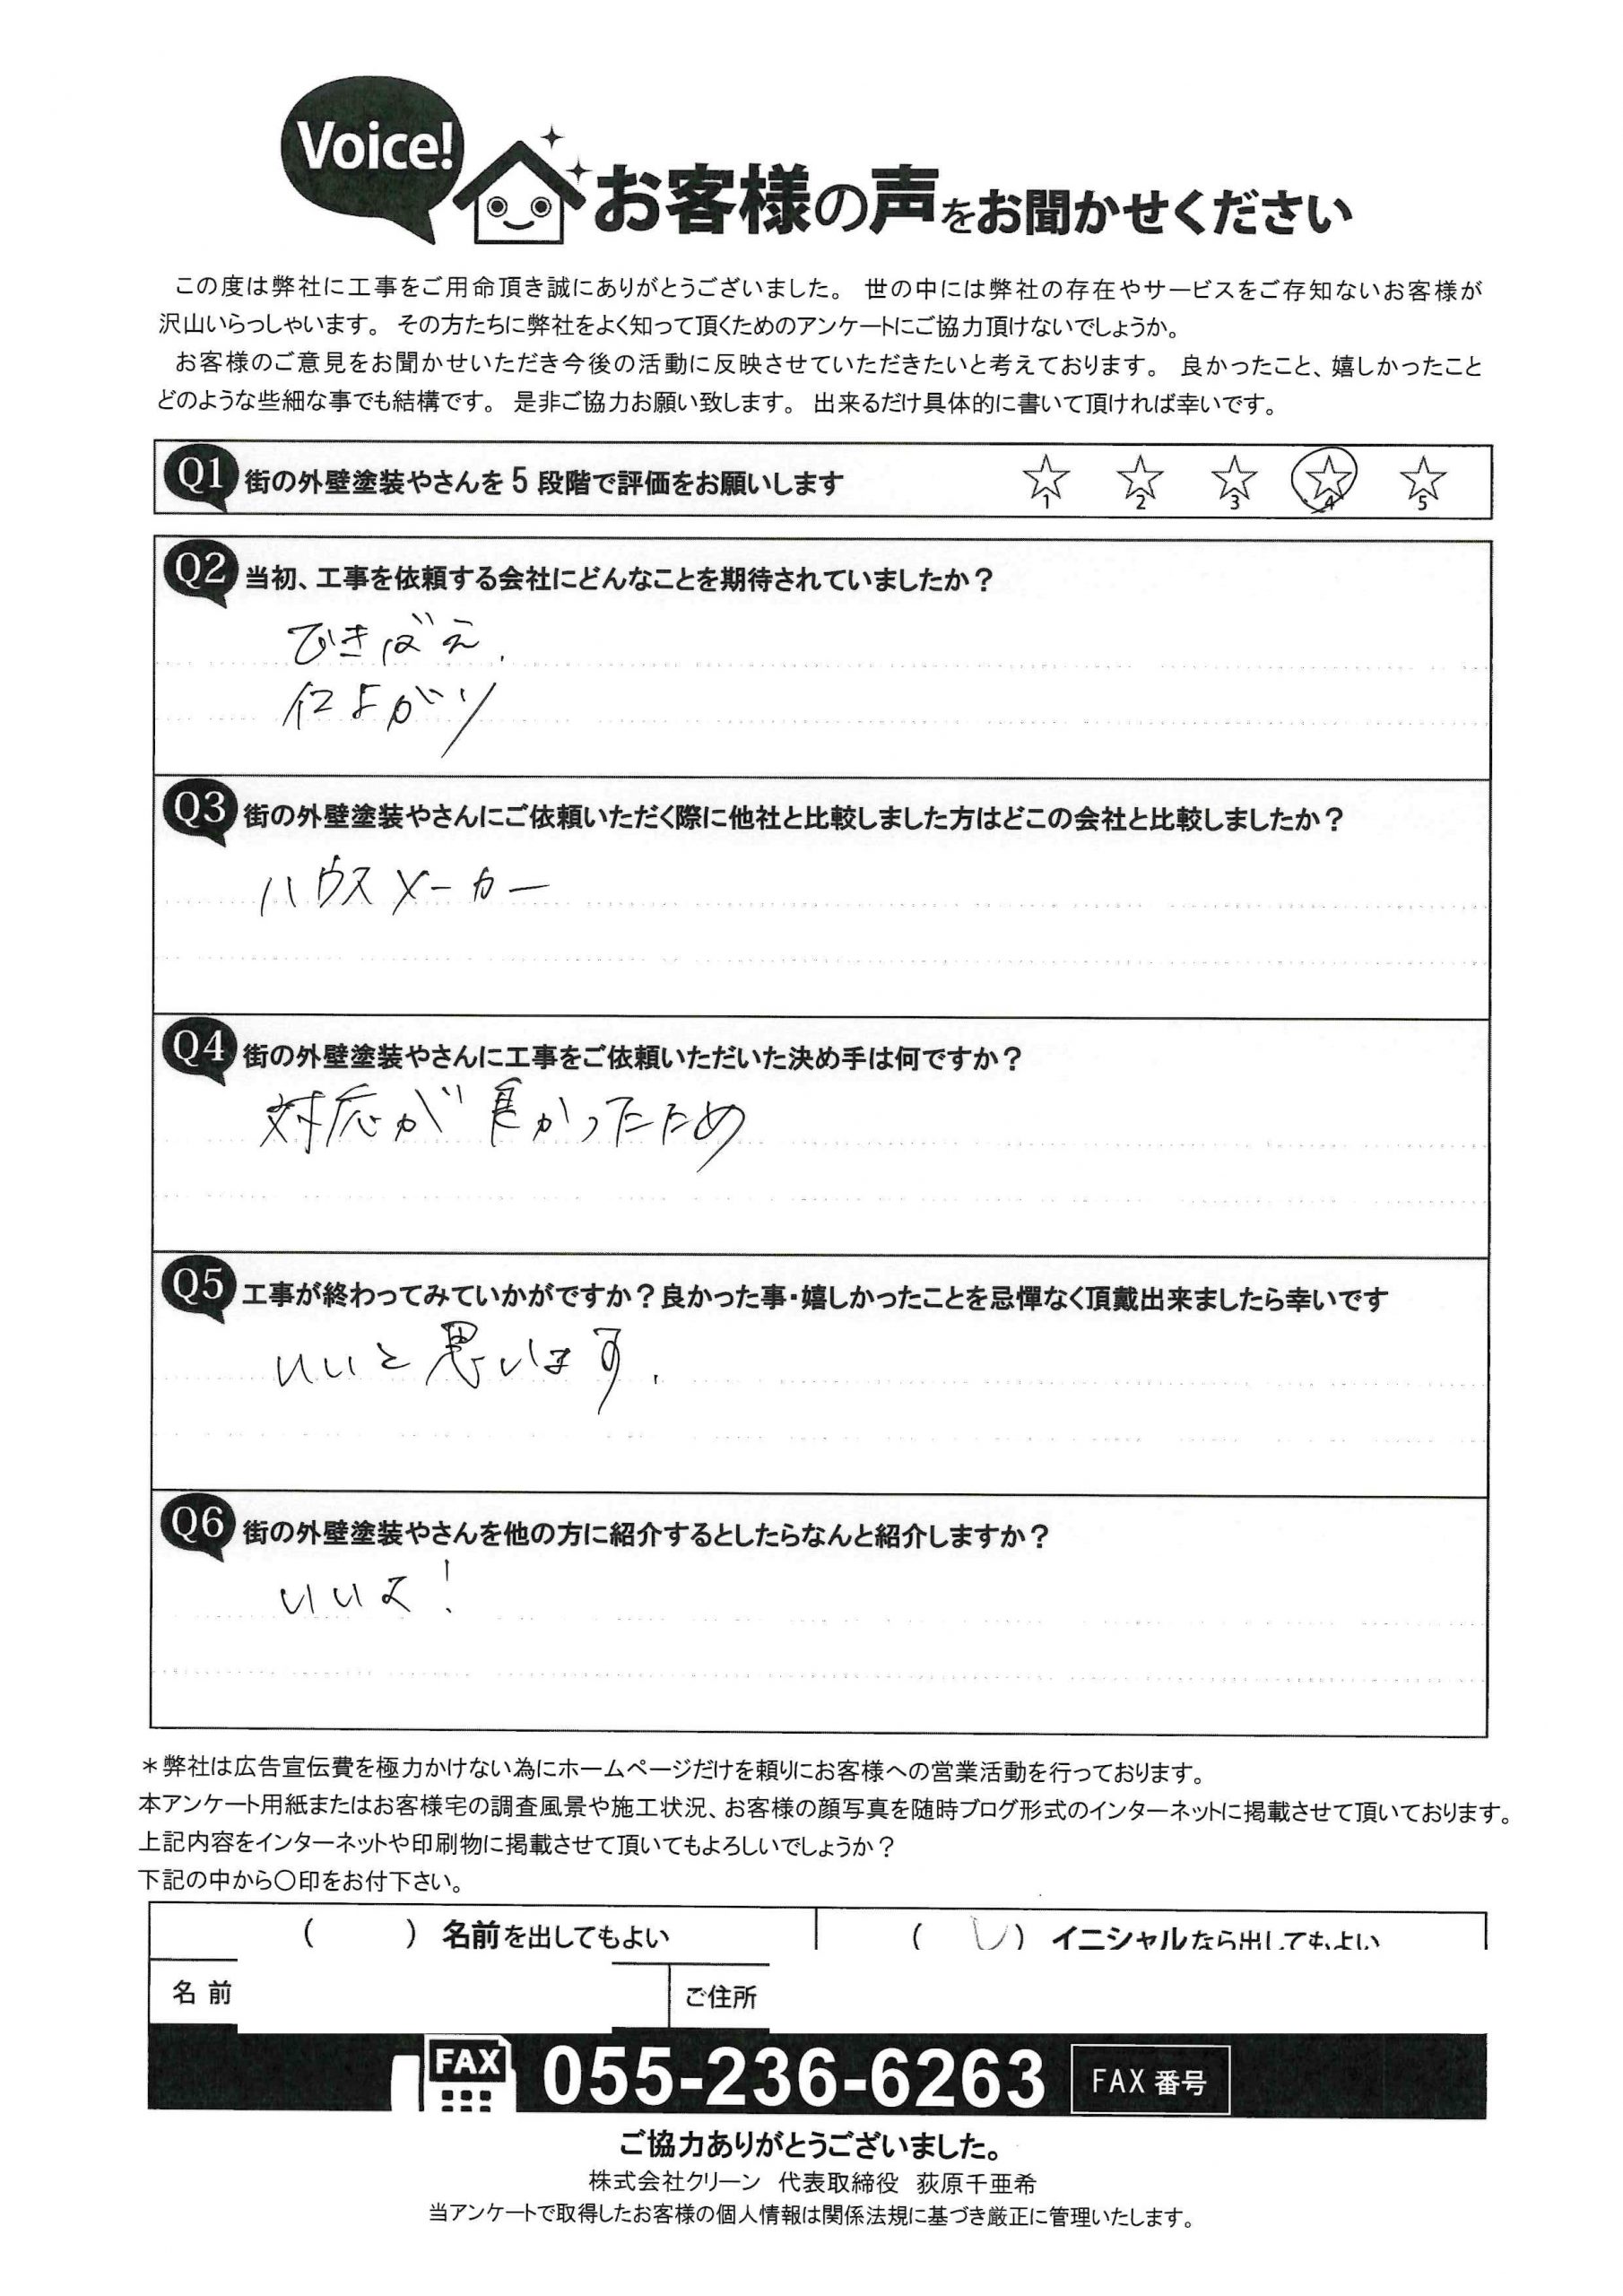 Voice!
お客様の声をお聞かせください
この度は弊社に工事をご用命頂き誠にありがとうございました。 世の中には弊社の存在やサービスをご存知ないお客様が
沢山いらっしゃいます。 その方たちに弊社をよく知って頂くためのアンケートにご協力頂けないでしょうか。
お客様のご意見をお聞かせいただき今後の活動に反映させていただきたいと考えております。 良かったこと、嬉しかったこと
どのような些細な事でも結構です。 是非ご協力お願い致します。 出来るだけ具体的に書いて頂ければ幸いです。
Q1 街の外壁塗装やさんを5段階で評価をお願いします ☆1 ☆2 ☆3 ☆4 ☆5
Q2 当初、工事を依頼する会社にどんなことを期待されていましたか?
Q3 街の外壁塗装やさんにご依頼いただく際に他社と比較しました方はどこの会社と比較しましたか?
ハウスメーカー
Q4 街の外壁塗装やさんに工事をご依頼いただいた決め手は何ですか?
対応が良かったため
Q5 工事が終わってみていかがですか?良かった事・嬉しかったことを忌憚なく頂戴出来ましたら幸いです
いいと思います.
Q6 街の外壁塗装やさんを他の方に紹介するとしたらなんと紹介しますか?
いいよ!
*弊社は広告宣伝費を極力かけない為にホームページだけを頼りにお客様への営業活動を行っております。
本アンケート用紙またはお客様宅の調査風景や施工状況、お客様の顔写真を随時ブログ形式のインターネットに掲載させて頂いております。
上記内容をインターネットや印刷物に掲載させて頂いてもよろしいでしょうか?
下記の中から〇印をお付下さい。
( ) 名前を出してもよい ( レ ) イニシャルなら出してもよい
名 前 ご住所
FAX 055-236-6263 FAX 番号
ご協力ありがとうございました。
株式会社クリーン 代表取締役 荻原千亜希
当アンケートで取得したお客様の個人情報は関係法規に基づき厳正に管理いたします。